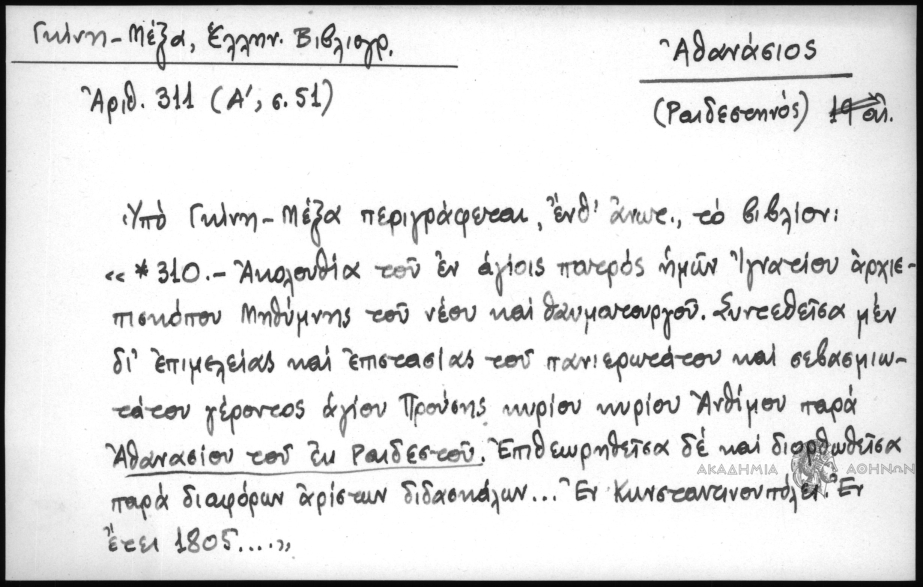 Γκίνη-Μέξα, Ἑλλην. Βιβλιογρ.
Ἀριθ. 311 (Α', σ. 51)
Ἀθανάσιος
(Ραιδεστηνός)
Ὑπὸ Γκίνη-Μέξα περιγράφεται, ἔνθ' ἀνωτ., τὸ βιβλίον:
«*310.- Ἀκολουθία τοῦ ἐν ἁγίοις πατρός ἡμῶν Ἰγνατίου ἀρχιε-
πισκόπου Μηθύμνης τοῦ νέου καὶ θαυματουργοῦ. Συντεθεῖσα μέν
δι' ἐπιμελείας καὶ ἐπιστασίας τοῦ πανιερωτάτου καὶ σεβασμιω-
τάτου γέροντος ἁγίου Προύσης κυρίου κυρίου Ἀνθίμου παρά
Ἀθανασίου τοῦ ἐκ Ραιδεστοῦ. Ἐπιθεωρηθεῖσα δέ καὶ διορθωθεῖσα
ΑΚΑΔΗΜΙΑ ΑΘΗΝΩΝ
παρά διαφόρων ἀρίστων διδασκάλων... Ἐν Κωνσταντινουπόλει. Ἐν
ἔτει 1805....»